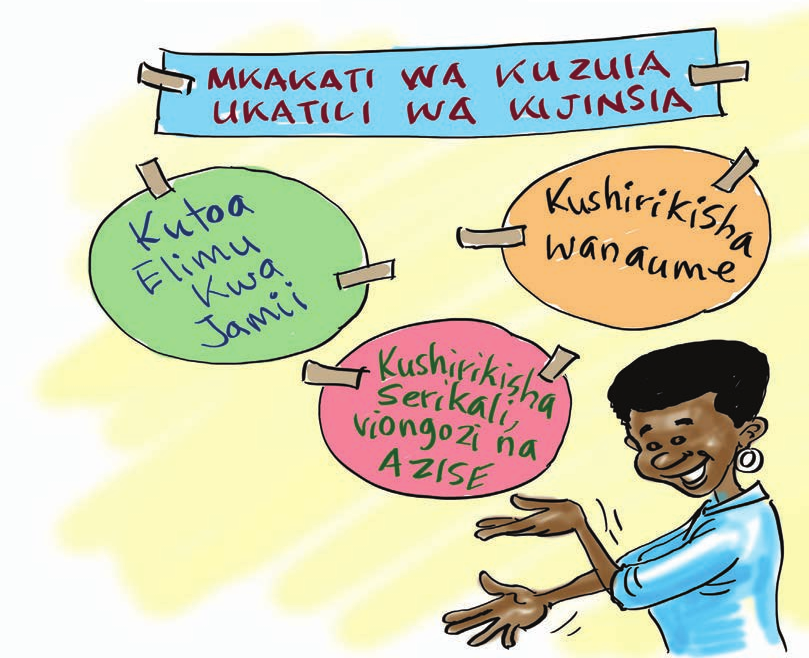 MKAKATI WA KUZUIA
UKATILI WA KIJINSIA
Kutoa
Elimu
Kwa
Jamii
Kushirikisha
wanaume
Kushirikisha
Serikali,
viongozi na
AZISE